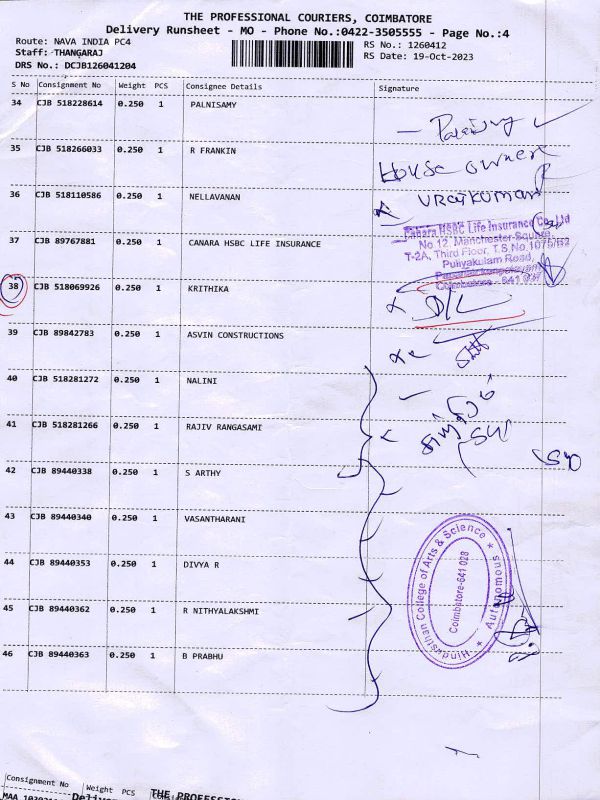 THE PROFESSIONAL COURIERS, COIMBATORE
Delivery Runsheet - MO - Phone No.:0422-3505555 - Page No.:4
Route: NAVA INDIA PC4
Staff: THANGARAJ
DRS No.: DCJB126041204
RS No.: 1260412
RS Date: 19-Oct-2023
S No Consignment No Weight PCS Consignee Details Signature
34 CJB 518228614 0.250 1 PALNISAMY
35 CJB 518266033 0.250 1 R FRANKIN House owner
36 CJB 518110586 0.250 1 NELLAVANAN
37 CJB 89767881 0.250 1 CANARA HSBC LIFE INSURANCE
Canara HSBC Life Insurance Co. Ltd
No 12, Manchester Square,
T-2A, Third Floor, T.S.No.1075/B2
Puliyakulam Road,
38 CJB 518069926 0.250 1 KRITHIKA D/L
39 CJB 89842783 0.250 1 ASVIN CONSTRUCTIONS
40 CJB 518281272 0.250 1 NALINI
41 CJB 518281266 0.250 1 RAJIV RANGASAMI
42 CJB 89440338 0.250 1 S ARTHY
43 CJB 89440340 0.250 1 VASANTHARANI
44 CJB 89440353 0.250 1 DIVYA R
45 CJB 89440362 0.250 1 R NITHYALAKSHMI
46 CJB 89440363 0.250 1 B PRABHU
Hindusthan College of Arts & Science * Autonomous *
Coimbatore-641 028
Consignment No Weight PCS